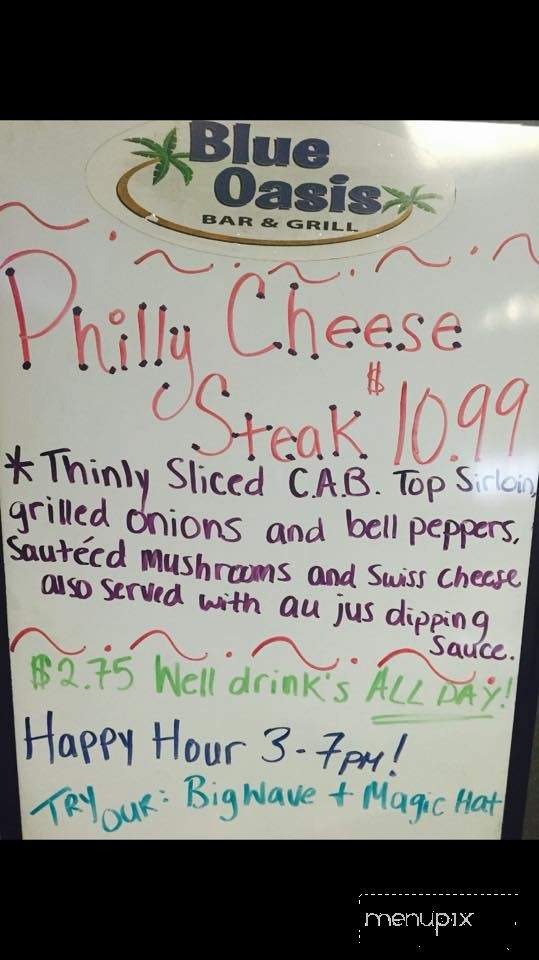 Blue
Oasis
BAR & GRILL
Philly Cheese
Steak $10.99
* Thinly Sliced C.A.B. Top Sirloin,
grilled onions and bell peppers,
Sautéed mushrooms and Swiss Cheese
also served with au jus dipping
Sauce.
$2.75 Well drink's ALL DAY!
Happy Hour 3-7PM!
TRY OUR: Big Wave + Magic Hat
menupix